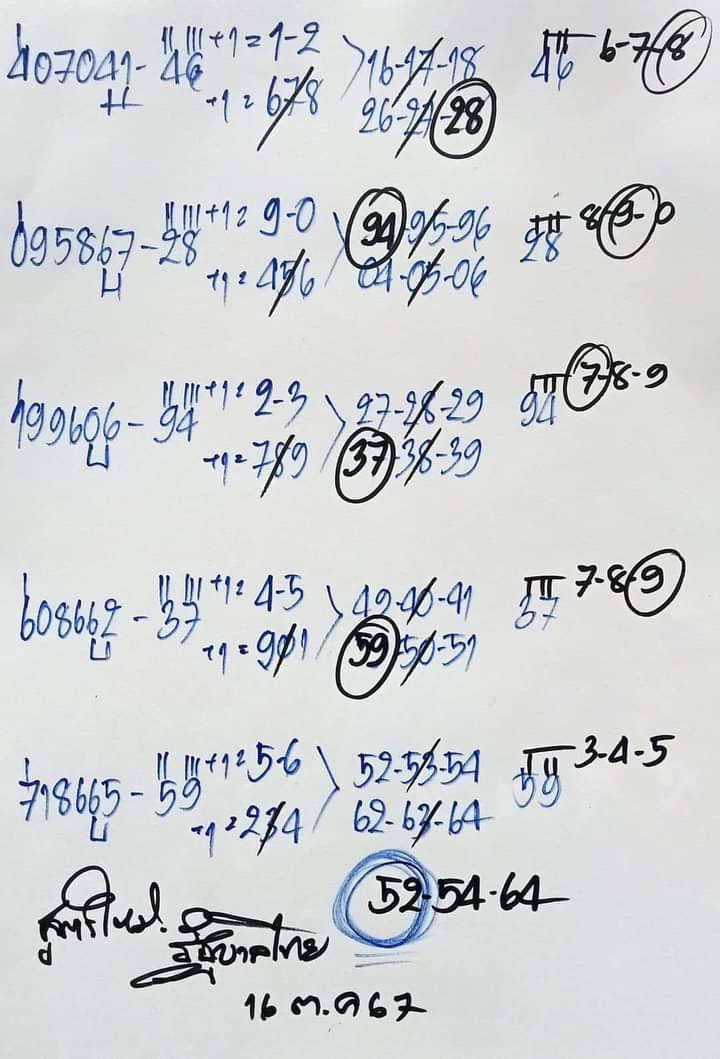 407041-46 +1=1-2 16-17-18 46 6-7-8
+1=678 26-27-28
095867-28 +1=9-0 94-95-96 28 8-9-0
+1=456 04-05-06
199606-94 +1=2-3 27-28-29 94 7-8-9
+1=789 37-38-39
608662-37 +1=4-5 49-40-41 37 7-8-9
+1=901 59-50-51
718665-59 +1=5-6 52-53-54 59 3-4-5
+1=234 62-63-64
52-54-64
16 ต.ค 67